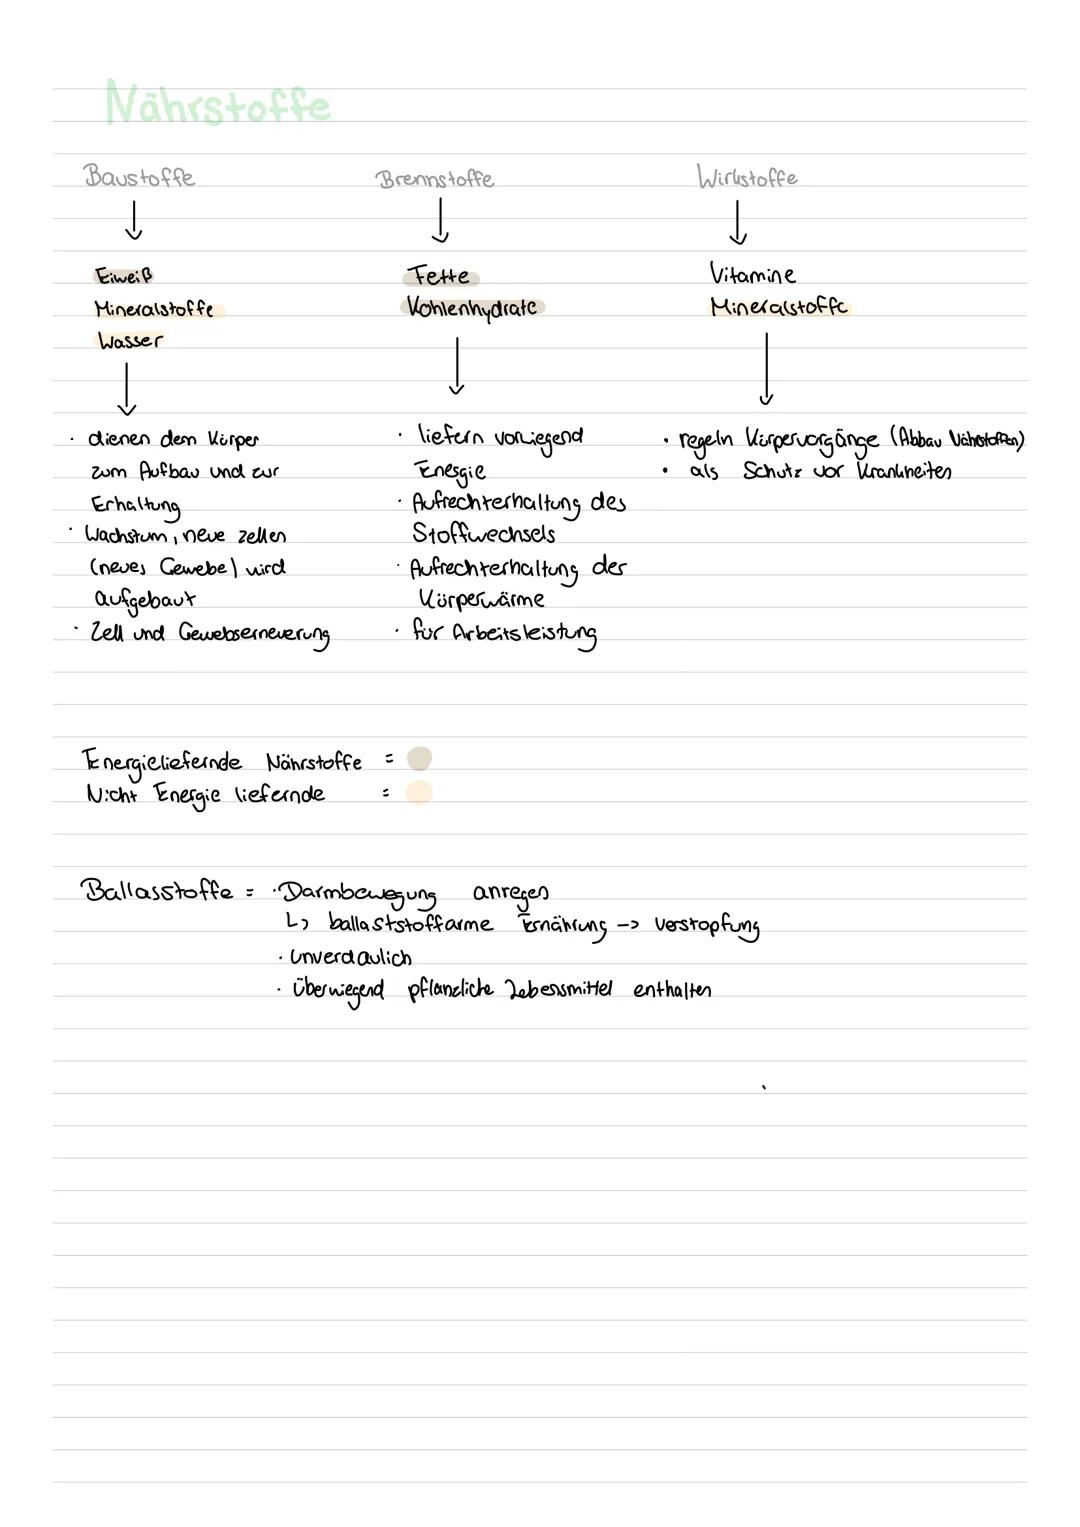 Nährstoffe
Baustoffe
Eiweiß
Mineralstoffe
Wasser
· dienen dem Körper
zum Aufbau und zur
Erhaltung
· Wachstum, neue zellen
(neues Gewebe) wird
aufgebaut
· Zell und Gewebserneuerung
Brennstoffe
Fette
Kohlenhydrate
· liefern vorwiegend
Energie
· Aufrechterhaltung des
Stoffwechsels
· Aufrechterhaltung der
Körperwärme
· für Arbeitsleistung
Wirkstoffe
Vitamine
Mineralstoffe
· regeln Körpervorgänge (Abbau Nährstoffen)
· als Schutz vor Krankheiten
Energieliefernde Nährstoffe =
Nicht Energie liefernde =
Ballasstoffe = · Darmbewegung anregen
↳ ballaststoffarme Ernährung -> Verstopfung
· Unverdaulich
· Überwiegend pflanzliche Lebensmittel enthalten